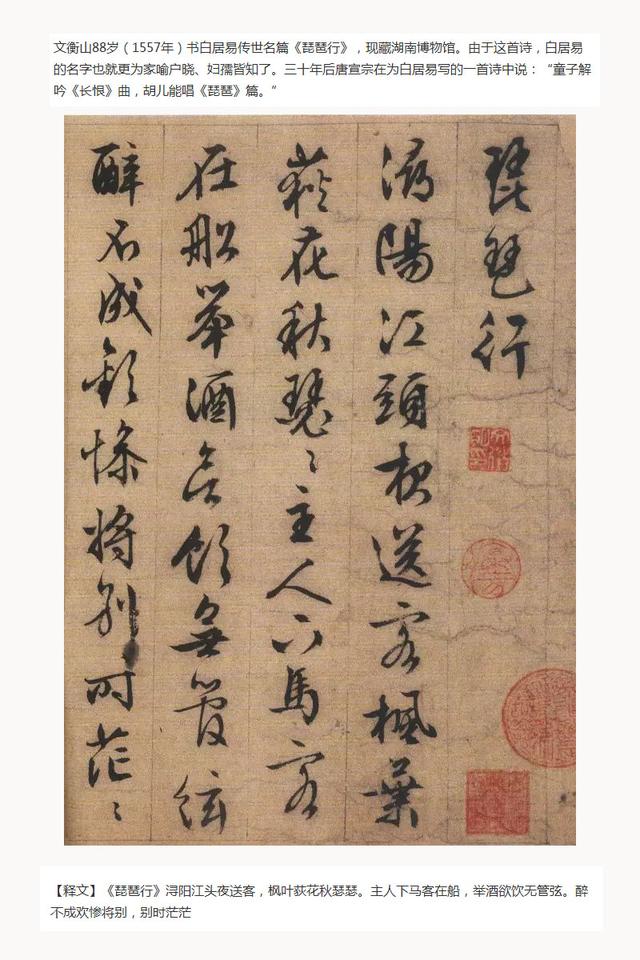 文衡山88岁（1557年）书白居易传世名篇《琵琶行》，现藏湖南博物馆。由于这首诗，白居易
的名字也就更为家喻户晓、妇孺皆知了。三十年后唐宣宗在为白居易写的一首诗中说：“童子解
吟《长恨》曲，胡儿能唱《琵琶》篇。“
琵琶行
潯陽江頭夜送客楓葉
荻花秋瑟〻主人下馬客
在船舉酒欲飲無管絃
醉不成歡慘將別〻時茫〻
【释文】《琵琶行》浔阳江头夜送客，枫叶荻花秋瑟瑟。主人下马客在船，举酒欲饮无管弦。醉
不成欢惨将别，别时茫茫